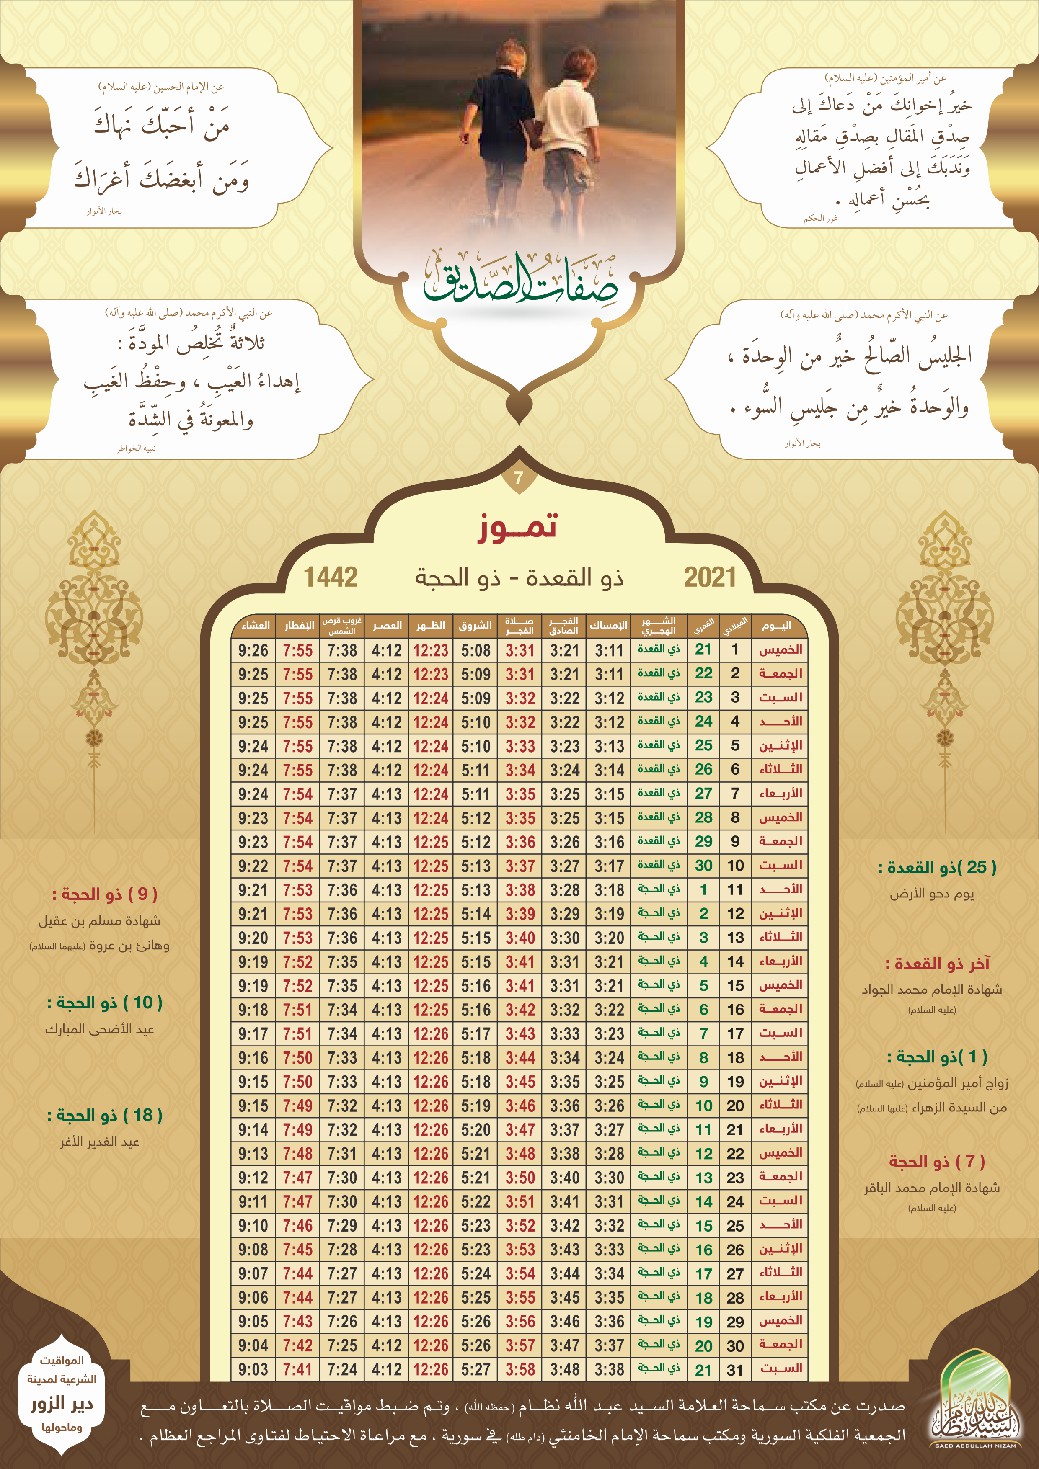 عن أمير المؤمنين (عليه السلام)
خيرُ إخوانِكَ مَنْ دَعاكَ إلى
صِدْقِ المَقالِ بصِدْقِ مَقالِهِ
وَنَدَبَكَ إلى أفضلِ الأعمالِ
بحُسْنِ أعمالِه .
غرر الحكم
عن الإمام الحسين (عليه السلام)
مَنْ أحَبّكَ نَهاكَ
وَمَن أبغضَكَ أغرَاكَ
بحار الأنوار
صفات الصديق
عن النبي الأكرم محمد (صلى الله عليه وآله)
الجليسُ الصّالحُ خيرٌ من الوحدَة ،
والوَحدةُ خيرٌ مِن جَليسِ السُّوء .
بحار الأنوار
عن النبي الأكرم محمد (صلى الله عليه وآله)
ثلاثةٌ تُخلِصُ المودَّةَ :
إهداءُ العَيْبِ ، وحِفْظُ الغَيبِ
والمعونَةُ في الشِّدَّة
تنبيه الخواطر
7
تمــوز
2021 ذو القعدة - ذو الحجة 1442
اليــوم الميلادي القمري الشـــهر الهجري الإمساك الفجــر الصادق صــلاة الفجــر الشروق الظــهر العصــر غروب قرص الشمس الإفطار العشاء
الخميس 1 21 ذي القعدة 3:11 3:21 3:31 5:08 12:23 4:12 7:38 7:55 9:26
الجمعــة 2 22 ذي القعدة 3:11 3:21 3:31 5:09 12:23 4:12 7:38 7:55 9:25
الســبت 3 23 ذي القعدة 3:12 3:22 3:32 5:09 12:24 4:12 7:38 7:55 9:25
الأحــــد 4 24 ذي القعدة 3:12 3:22 3:32 5:10 12:24 4:12 7:38 7:55 9:25
الإثنـين 5 25 ذي القعدة 3:13 3:23 3:33 5:10 12:24 4:12 7:38 7:55 9:24
الثـلاثاء 6 26 ذي القعدة 3:14 3:24 3:34 5:11 12:24 4:12 7:38 7:55 9:24
الأربـعاء 7 27 ذي القعدة 3:15 3:25 3:35 5:11 12:24 4:13 7:37 7:54 9:24
الخميس 8 28 ذي القعدة 3:15 3:25 3:35 5:12 12:24 4:13 7:37 7:54 9:23
الجمعــة 9 29 ذي القعدة 3:16 3:26 3:36 5:12 12:25 4:13 7:37 7:54 9:23
الســبت 10 30 ذي القعدة 3:17 3:27 3:37 5:13 12:25 4:13 7:37 7:54 9:22
الأحــــد 11 1 ذي الحـجة 3:18 3:28 3:38 5:13 12:25 4:13 7:36 7:53 9:21
الإثنـين 12 2 ذي الحـجة 3:19 3:29 3:39 5:14 12:25 4:13 7:36 7:53 9:21
الثـلاثاء 13 3 ذي الحـجة 3:20 3:30 3:40 5:15 12:25 4:13 7:36 7:53 9:20
الأربـعاء 14 4 ذي الحـجة 3:21 3:31 3:41 5:15 12:25 4:13 7:35 7:52 9:19
الخميس 15 5 ذي الحـجة 3:21 3:31 3:41 5:16 12:25 4:13 7:35 7:52 9:19
الجمعــة 16 6 ذي الحـجة 3:22 3:32 3:42 5:16 12:25 4:13 7:34 7:51 9:18
الســبت 17 7 ذي الحـجة 3:23 3:33 3:43 5:17 12:26 4:13 7:34 7:51 9:17
الأحــــد 18 8 ذي الحـجة 3:24 3:34 3:44 5:18 12:26 4:13 7:33 7:50 9:16
الإثنـين 19 9 ذي الحـجة 3:25 3:35 3:45 5:18 12:26 4:13 7:33 7:50 9:15
الثـلاثاء 20 10 ذي الحـجة 3:26 3:36 3:46 5:19 12:26 4:13 7:32 7:49 9:15
الأربـعاء 21 11 ذي الحـجة 3:27 3:37 3:47 5:20 12:26 4:13 7:32 7:49 9:14
الخميس 22 12 ذي الحـجة 3:28 3:38 3:48 5:21 12:26 4:13 7:31 7:48 9:13
الجمعــة 23 13 ذي الحـجة 3:30 3:40 3:50 5:21 12:26 4:13 7:30 7:47 9:12
الســبت 24 14 ذي الحـجة 3:31 3:41 3:51 5:22 12:26 4:13 7:30 7:47 9:11
الأحــــد 25 15 ذي الحـجة 3:32 3:42 3:52 5:23 12:26 4:13 7:29 7:46 9:10
الإثنـين 26 16 ذي الحـجة 3:33 3:43 3:53 5:23 12:26 4:13 7:28 7:45 9:08
الثـلاثاء 27 17 ذي الحـجة 3:34 3:44 3:54 5:24 12:26 4:13 7:27 7:44 9:07
الأربـعاء 28 18 ذي الحـجة 3:35 3:45 3:55 5:25 12:26 4:13 7:27 7:44 9:06
الخميس 29 19 ذي الحـجة 3:36 3:46 3:56 5:26 12:26 4:13 7:26 7:43 9:05
الجمعــة 30 20 ذي الحـجة 3:37 3:47 3:57 5:26 12:26 4:12 7:25 7:42 9:04
الســبت 31 21 ذي الحـجة 3:38 3:48 3:58 5:27 12:26 4:12 7:24 7:41 9:03
( 25 )ذو القعدة :
يوم دحو الأرض
آخر ذو القعدة :
شهادة الإمام محمد الجواد
(عليه السلام)
( 1 )ذو الحجة :
زواج أمير المؤمنين (عليه السلام)
من السيدة الزهراء (عليها السلام)
( 7 ) ذو الحجة
شهادة الإمام محمد الباقر
(عليه السلام)
( 9 ) ذو الحجة :
شهادة مسلم بن عقيل
وهانئ بن عروة (عليهما السلام)
( 10 ) ذو الحجة :
عيد الأضحى المبارك
( 18 ) ذو الحجة :
عيد الغدير الأغر
المواقيت
الشرعية لمدينة
دير الزور
وماحولها
صدرت عن مكتب سماحة العلامة السيد عبد الله نظـام (حفظه الله) ، وتـم ضبـط مواقيـت الصـلاة بالتعـاون مـــع
الجمعية الفلكية السورية ومكتب سماحة الإمام الخامنئي (دام ظله) في سورية ، مع مراعـاة الاحتياط لفتاوى المراجع العظام .
السيد عبد الله نظام
SAED ABDULLAH NIZAM